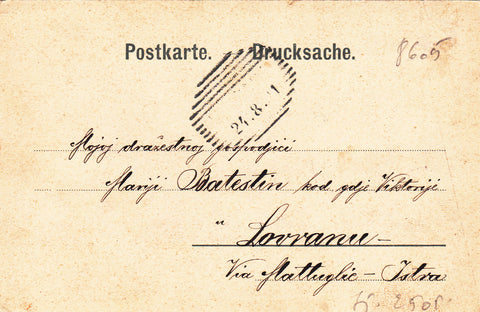 Postkarte. Drucksache.
8605
24.8. 1
Mojoj dražestnoj gospodjici
Mariji Batestin kod gdje Viktorije
u Lovranu –
Via Mattuglie – Istra